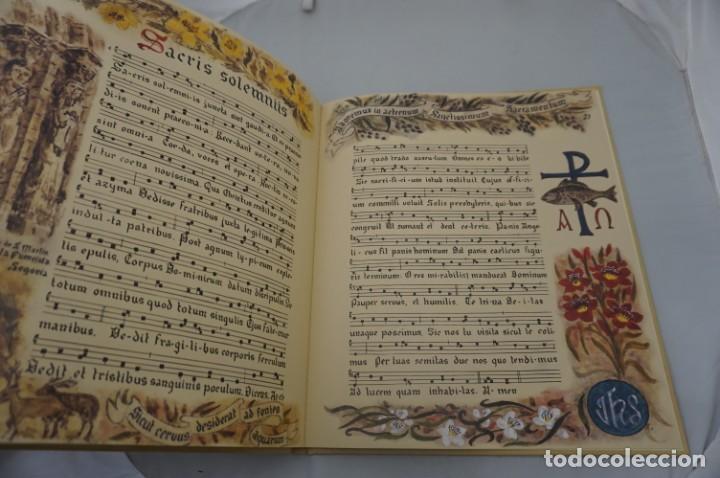 Sacris solemniis
Sacris sol-emni-is juncta sint gaudi-a, Et ex prae-cor-
di-is sonent praeconi-a: Recedant ve-te-ra, no-va
sint omni-a Corda, voces et opera Noctis reco-
li tur coena novissima, Qua Christus creditur agnum
et azyma Dedisse fratribus juxta legitima Priscis
indulta patribus. Post agnum typicum exple-
tis epulis, Corpus Dominicum datum discipulis Sic
totum omnibus quod totum singulis Ejus fate-mur
manibus. Dedit fragi-li-bus corporis ferculum
Dedit et tristibus sanguinis poculum, Dicens, Ac-
de S. Martin
Segovia
Sicut cervus desiderat ad fontes
aquarum
Adoremus in aeternum Sanctissimum Sacramentum
21
pite quod trado vasculum Omnes ex e-o bibite
Sic sacri-fi-ci-um istud instituit Cujus offi-ci-
um committi voluit Solis presbyteris, quibus sic
congruit Ut sumant et dent ceteris. Panis Ange
li-cus fit panis hominum Dat panis caelicus figu
ris terminum. O res mirabilis! manducat Dominum
Pauper servus, et humilis. Te trina De-i-tas
unaque poscimus Sic nos tu visita sicut te coli
mus Per tuas semitas duc nos quo tendimus
Ad lucem quam inhabi-tas. A-men
P
Α Ω
JHS
todocoleccion.net